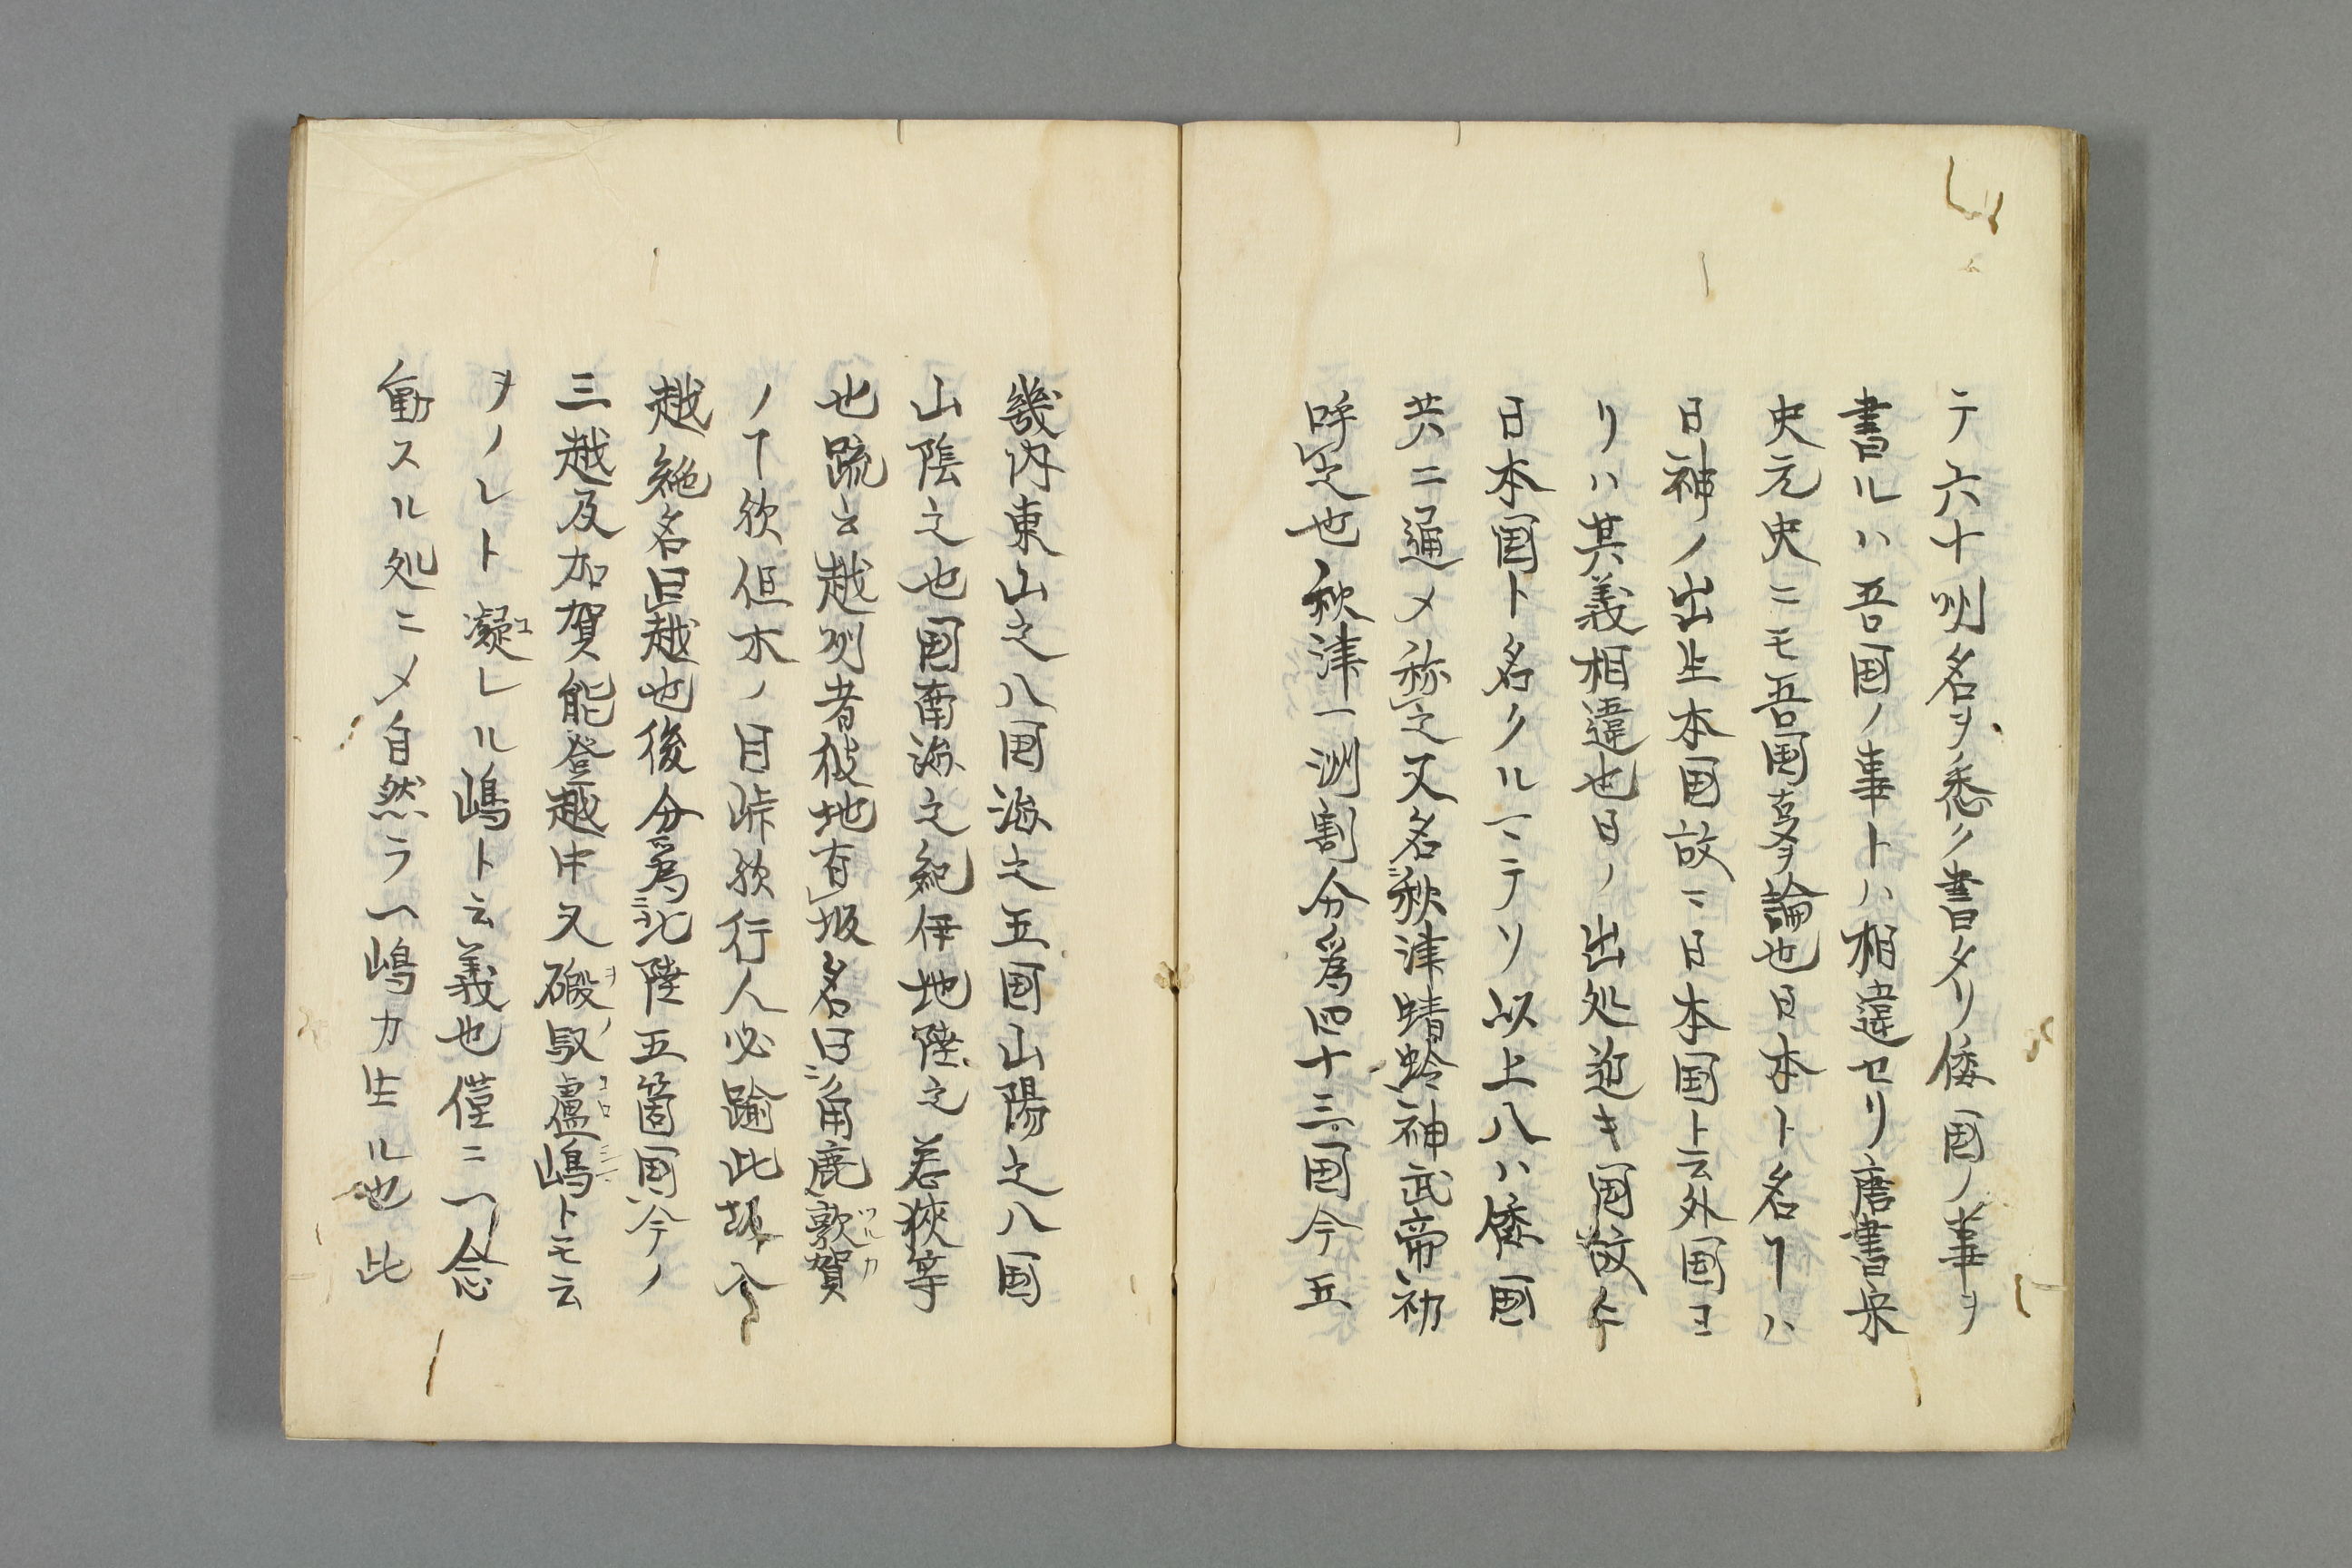 テ六十州名ヲ悉ク書タリ倭国ノ事ヲ
書ルハ吾国ノ事トハ相違セリ唐書宋
史元史ニモ吾国事ヲ論也日本ト名ヿハ
日神ノ出生本国故ニ日本国ト云外国ヨ
リハ其義相違也日ノ出処近キ国故ト
日本国ト名クルマテソ以上八ハ倭国
共ニ通メ称之又名秋津蜻蛉神武帝初
呼之也秋津一洲割分為四十三国今五
畿内東山之八国海之五国山陽之八国
山陰之也国南海之紀伊地陸之若狹等
也䟽云越列者彼地有坂名曰角鹿敦賀ツルカ
ノヿ欤但木ノ目峠欤行人必踰此頭今
越絶名曰越也後分為北陸五箇国今ノ
三越及加賀能登越中又磤馭盧嶋ヲノコロシマトモ云
ヲノレト凝コレル嶋ト云義也僅ニ一念
動スル処ニメ自然ラ一嶋カ生ル也此